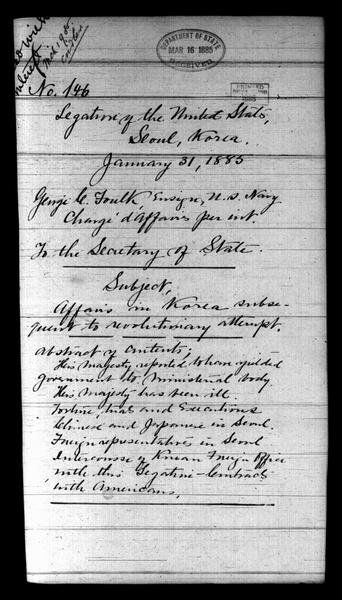 DEPARTMENT OF STATE
MAR 16 1885
RECEIVED
No. 146
Legation of the United States,
Seoul, Korea.
January 31, 1885
George C. Foulk Ensign, U.S. Navy
Chargé d'Affaires per int.
To the Secretary of State.
Subject,
Affairs in Korea subse-
quent to revolutionary attempt.
Abstract of contents;
His majesty reported to have yielded
government to ministerial body
His majesty has been ill.
Torture, trial and Executions
Chinese and Japanese in Seoul.
Foreign representatives in Seoul
Intercourse of Korean Foreign Office
with this Legation - Contracts
with Americans.